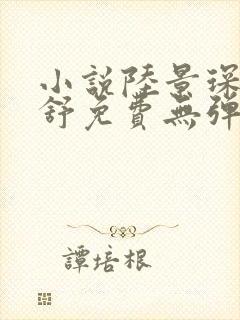 小說陸景琛
舒免費無彈
譚培根